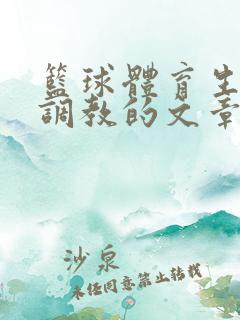 籃球體育生
調教的文章
沙泉
未经同意禁止转载